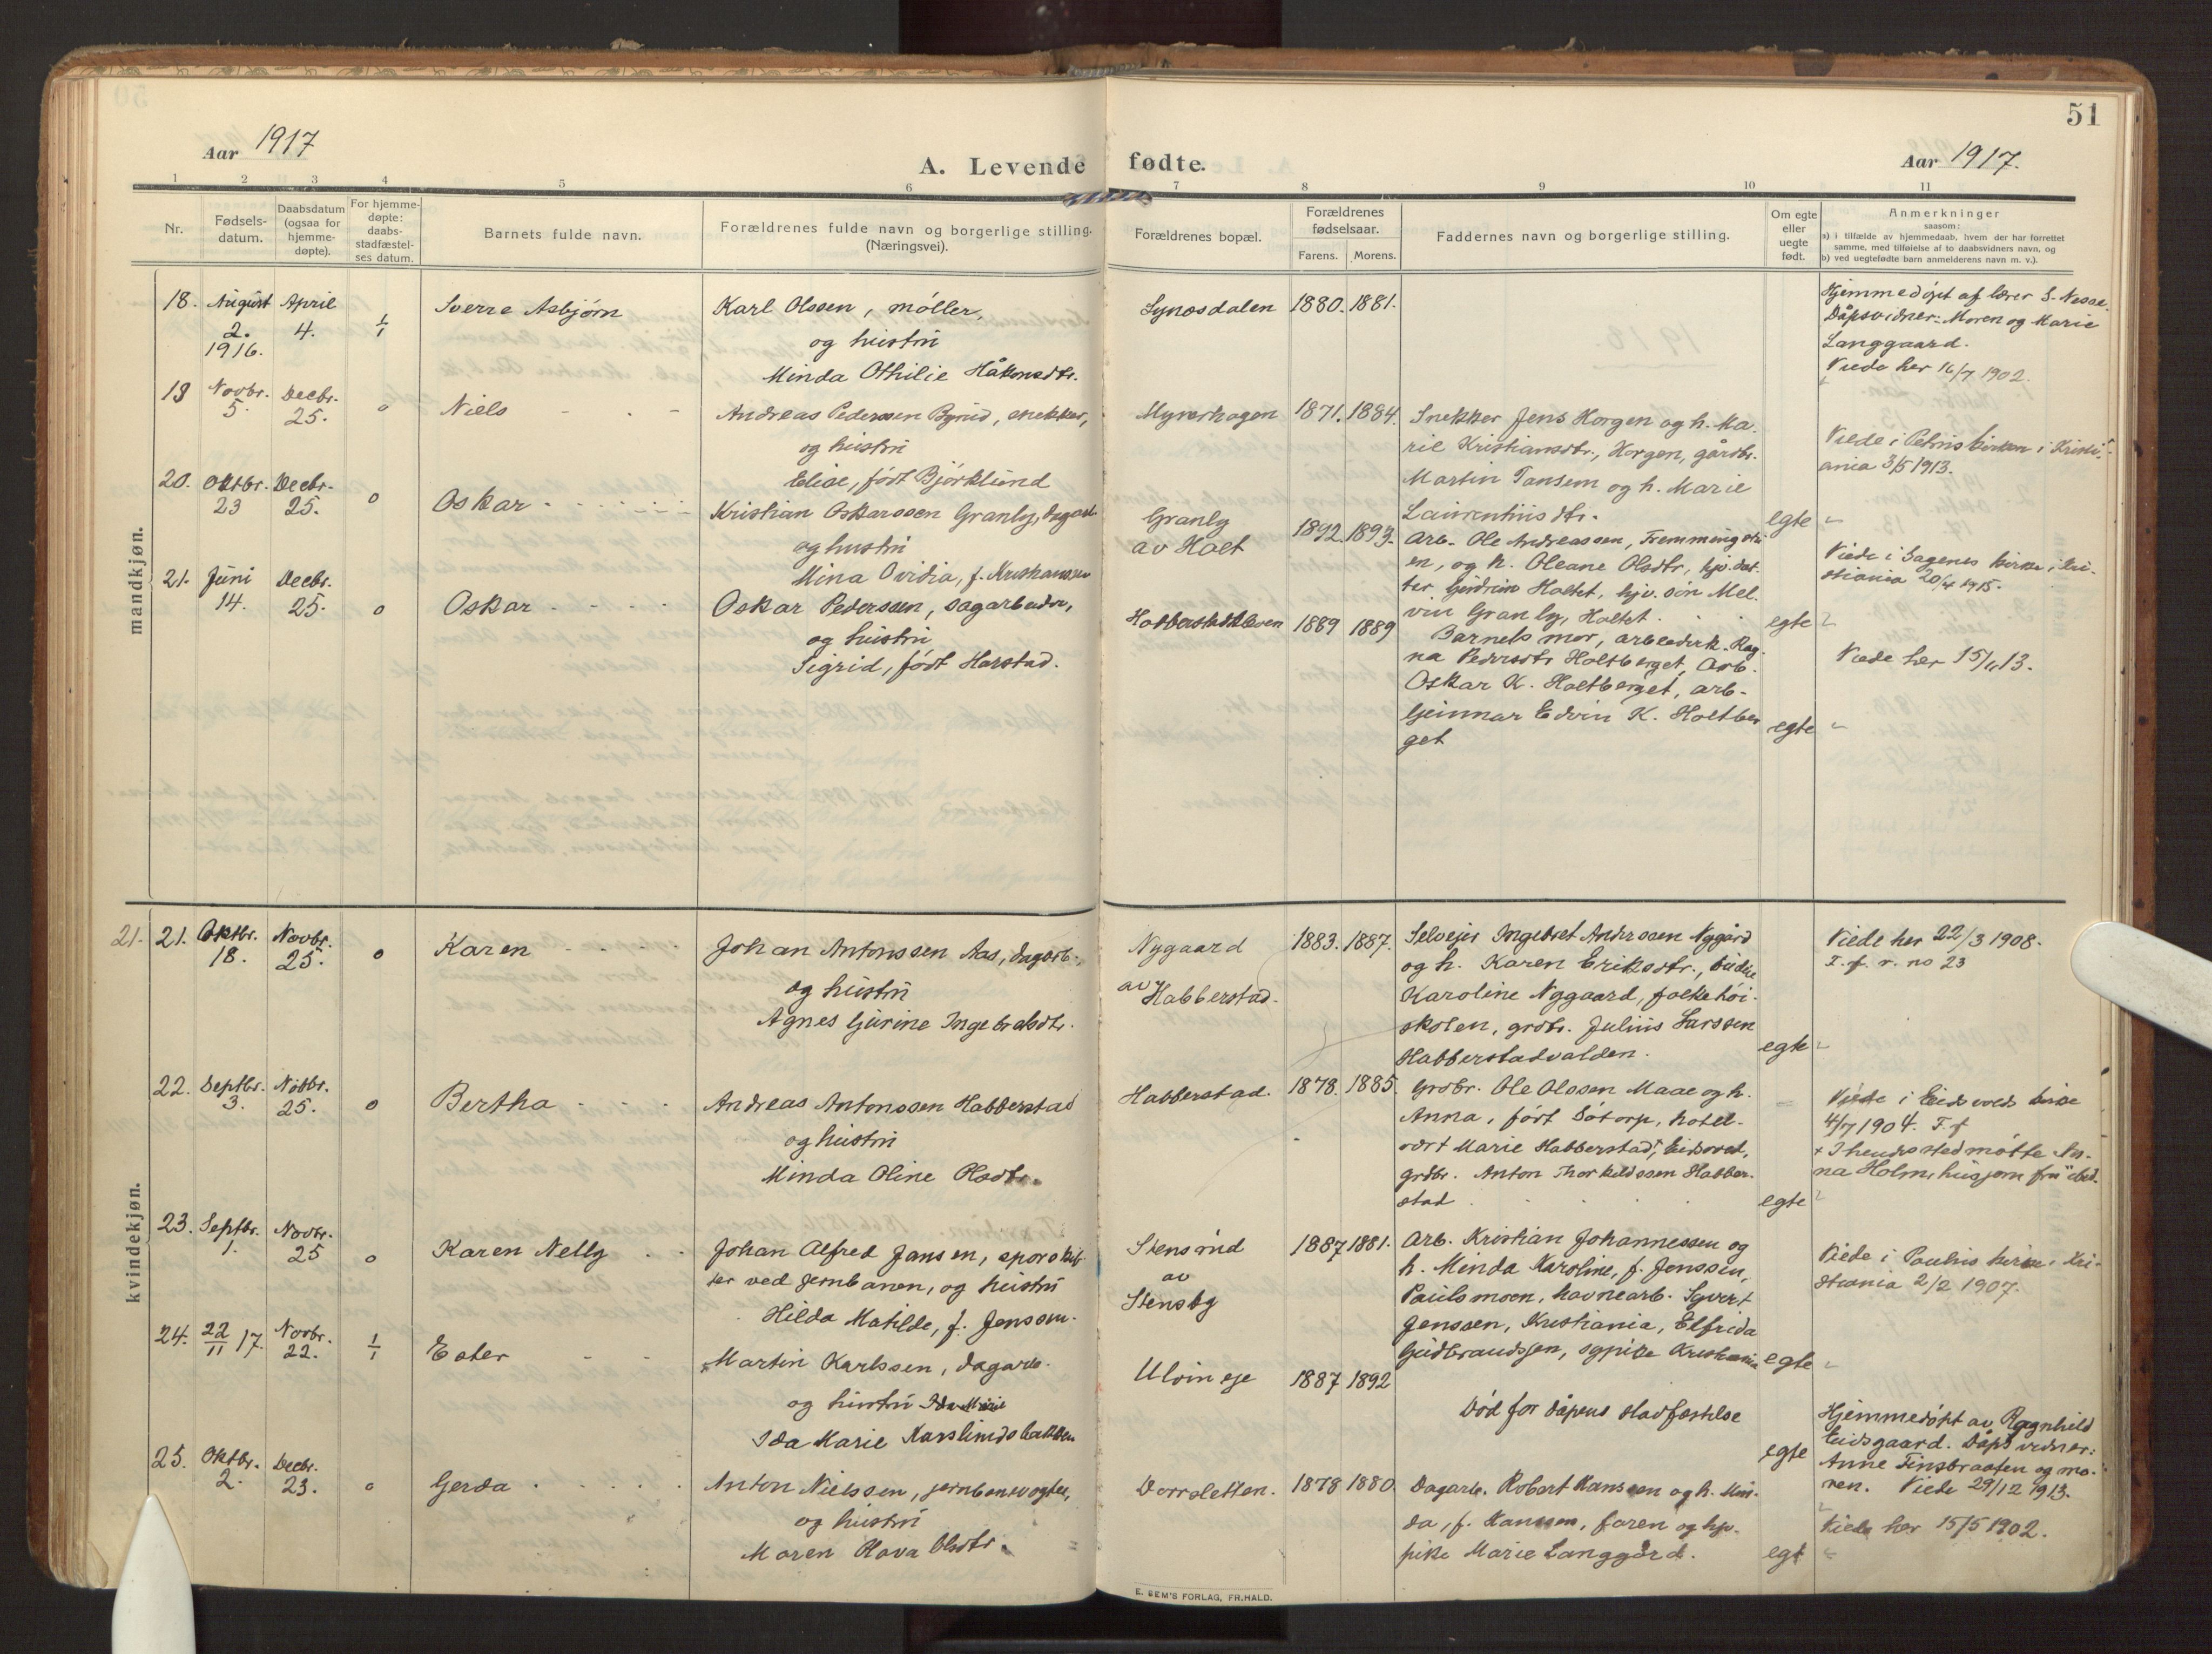 51
Aar 1917
A. Levende fødte.
Aar 1917.
1 2 3 4 5 6 7 8 9 10 11
Nr.
Fødsels-
datum.
Daabsdatum
(ogsaa for
hjemme-
døpte).
For hjemme-
døpte:
daabs-
stadfæstel-
ses datum.
Barnets fulde navn.
Forældrenes fulde navn og borgerlige stilling.
(Næringsvei).
Forældrenes bopæl.
Forældrenes
fødselsaar.
Farens. Morens.
Faddernes navn og borgerlige stilling.
Om egte
eller
uegte
født.
Anmerkninger
saasom:
a) i tilfælde av hjemmedaab, hvem der har forrettet
samme, med tilføielse af to daabsvidners navn, og
b) ved uegtefødte barn anmelderens navn m. v.).
mandkjøn.
18. August
2.
1916.
April
4.
1/1
Sverre Asbjørn
Karl Olssen, møller,
og hustru
Minda Othilie Håkonsdtr.
Synosdalen
1880. 1881.
Hjemmedøpt af lærer S. Nesse.
Dåpsvidner: Moren og Marie
Langgaard.
Viede her 16/7 1902.
19 Novbr.
5.
Decbr.
25.
o
Niels
Andreas Pederssen Byrud, snekker,
og hustru
Elise, født Björklund
Myrerhagen
1871. 1884.
Snekker Jens Horgen og h. Ma-
ril Kristiansdtr., Horgen, gårdbr.
Martin Tansem og h. Marie
Laurentiusdtr.
egte
Viede i Petrus kirken i Kristi-
ania 3/5 1913.
20. Oktbr.
23
Decbr.
25.
o
Oskar
Kristian Oskarssen Granly, dagarb.
og hustru
Mina Ovidia, f. Kristianssen
Granly
av Holt
1892. 1893.
Arb. Ole Andreassen, Fremmingstu-
en, og h. Oleane Olsdtr, hjv. dat-
ter Gudrun Holtet, hjv. sön Mel-
vin Granly, Holtet.
egte
Viede i Sagenes kirke i Kri-
stiania 20/4 1915.
21. Juni
14.
Decbr.
25.
o
Oskar
Oskar Pederssen, sagarbeider,
og hustru
Sigrid, født Harstad.
1889 1889
Barnets mor, arbeiderk. Rag-
na Pedersdtr Holtberget, Arb.
Oskar K. Holtberget, arb.
Gunnar Edvin K. Holtber-
get
egte
Viede her 15/11 13.
kvindekjøn.
21. 21. Oktbr.
18.
Novbr.
25.
o
Karen
Johan Antonssen Aas, dagarb.,
og hustru
Agnes Gurine Ingebretsdtr.
Nygaard
av
Habberstad.
1883. 1887.
Selveier Ingebret Anderssen Nygård
og h. Karen Eriksdtr., budeie
Karoline Nygaard, folkehöi-
skolen, grdbr. Julius Larssen
Habberstadvalden.
egte
Viede her 22/3 1908.
T. f. r. no 23
22. Septbr.
3.
Novbr.
25.
o
Bertha
Andreas Antonssen Habberstad
og hustru
Minda Oline Olsdtr.
Habberstad.
1878. 1885.
Grdbr. Ole Olssen Maae og h.
Anna, født Dotorp, hotel-
vert Marie Habberstad+, Eidsvold,
grdbr. Anton Thorkildssen Habber-
stad
egte
Viede i Eidsvolds kirke
4/7 1904. T. f
+ I hendes sted møtte An-
na Holm, husjom fru ibid.
23. Septbr.
1.
Novbr.
25
o
Karen Nelly
Johan Alfred Jansen, sporskif-
ter ved jernbanen, og hustru
Hilda Matilde, f. Jenssen.
Stensrud
av
Stensby
1887 1881.
Arb. Kristian Johannessen og
h. Minda Karoline, f. Jenssen,
Paulsmoen, havnearb. Syvert
Jenssen, Kristiania, Elfrida
Gudbrandssen, sypike Kristiania
egte
Viede i Paulus kirke i Kri-
stiania 2/2 1907.
24. 22/11 17.
Novbr.
22.
1/1
Ester
Martin Karlssen, dagarb.
og hustru Ida Marie
Ida Marie Karslundsbakken
Ulvin eje
1887 1892
Død før dåpens stadfæstelse
egte
Hjemmedöpt av Ragnhild
Eidsgaard. Dåpsvidner:
Anne Finsbraaten og mo-
ren. Viede 29/12 1913.
25. Oktbr.
2.
Decbr.
23.
o
Gerda
Anton Nielssen, jernbanevogter,
og hustru
Maren Olava Olsdtr.
Dorrsletten.
1878 1880.
Dagarb. Robert Hanssen og h. Min-
da, f. Hanssen, faren og hjv.
pike Marie Langgård.
egt
Viede her 15/5 1902.
E. SEM'S FORLAG, FR.HALD.